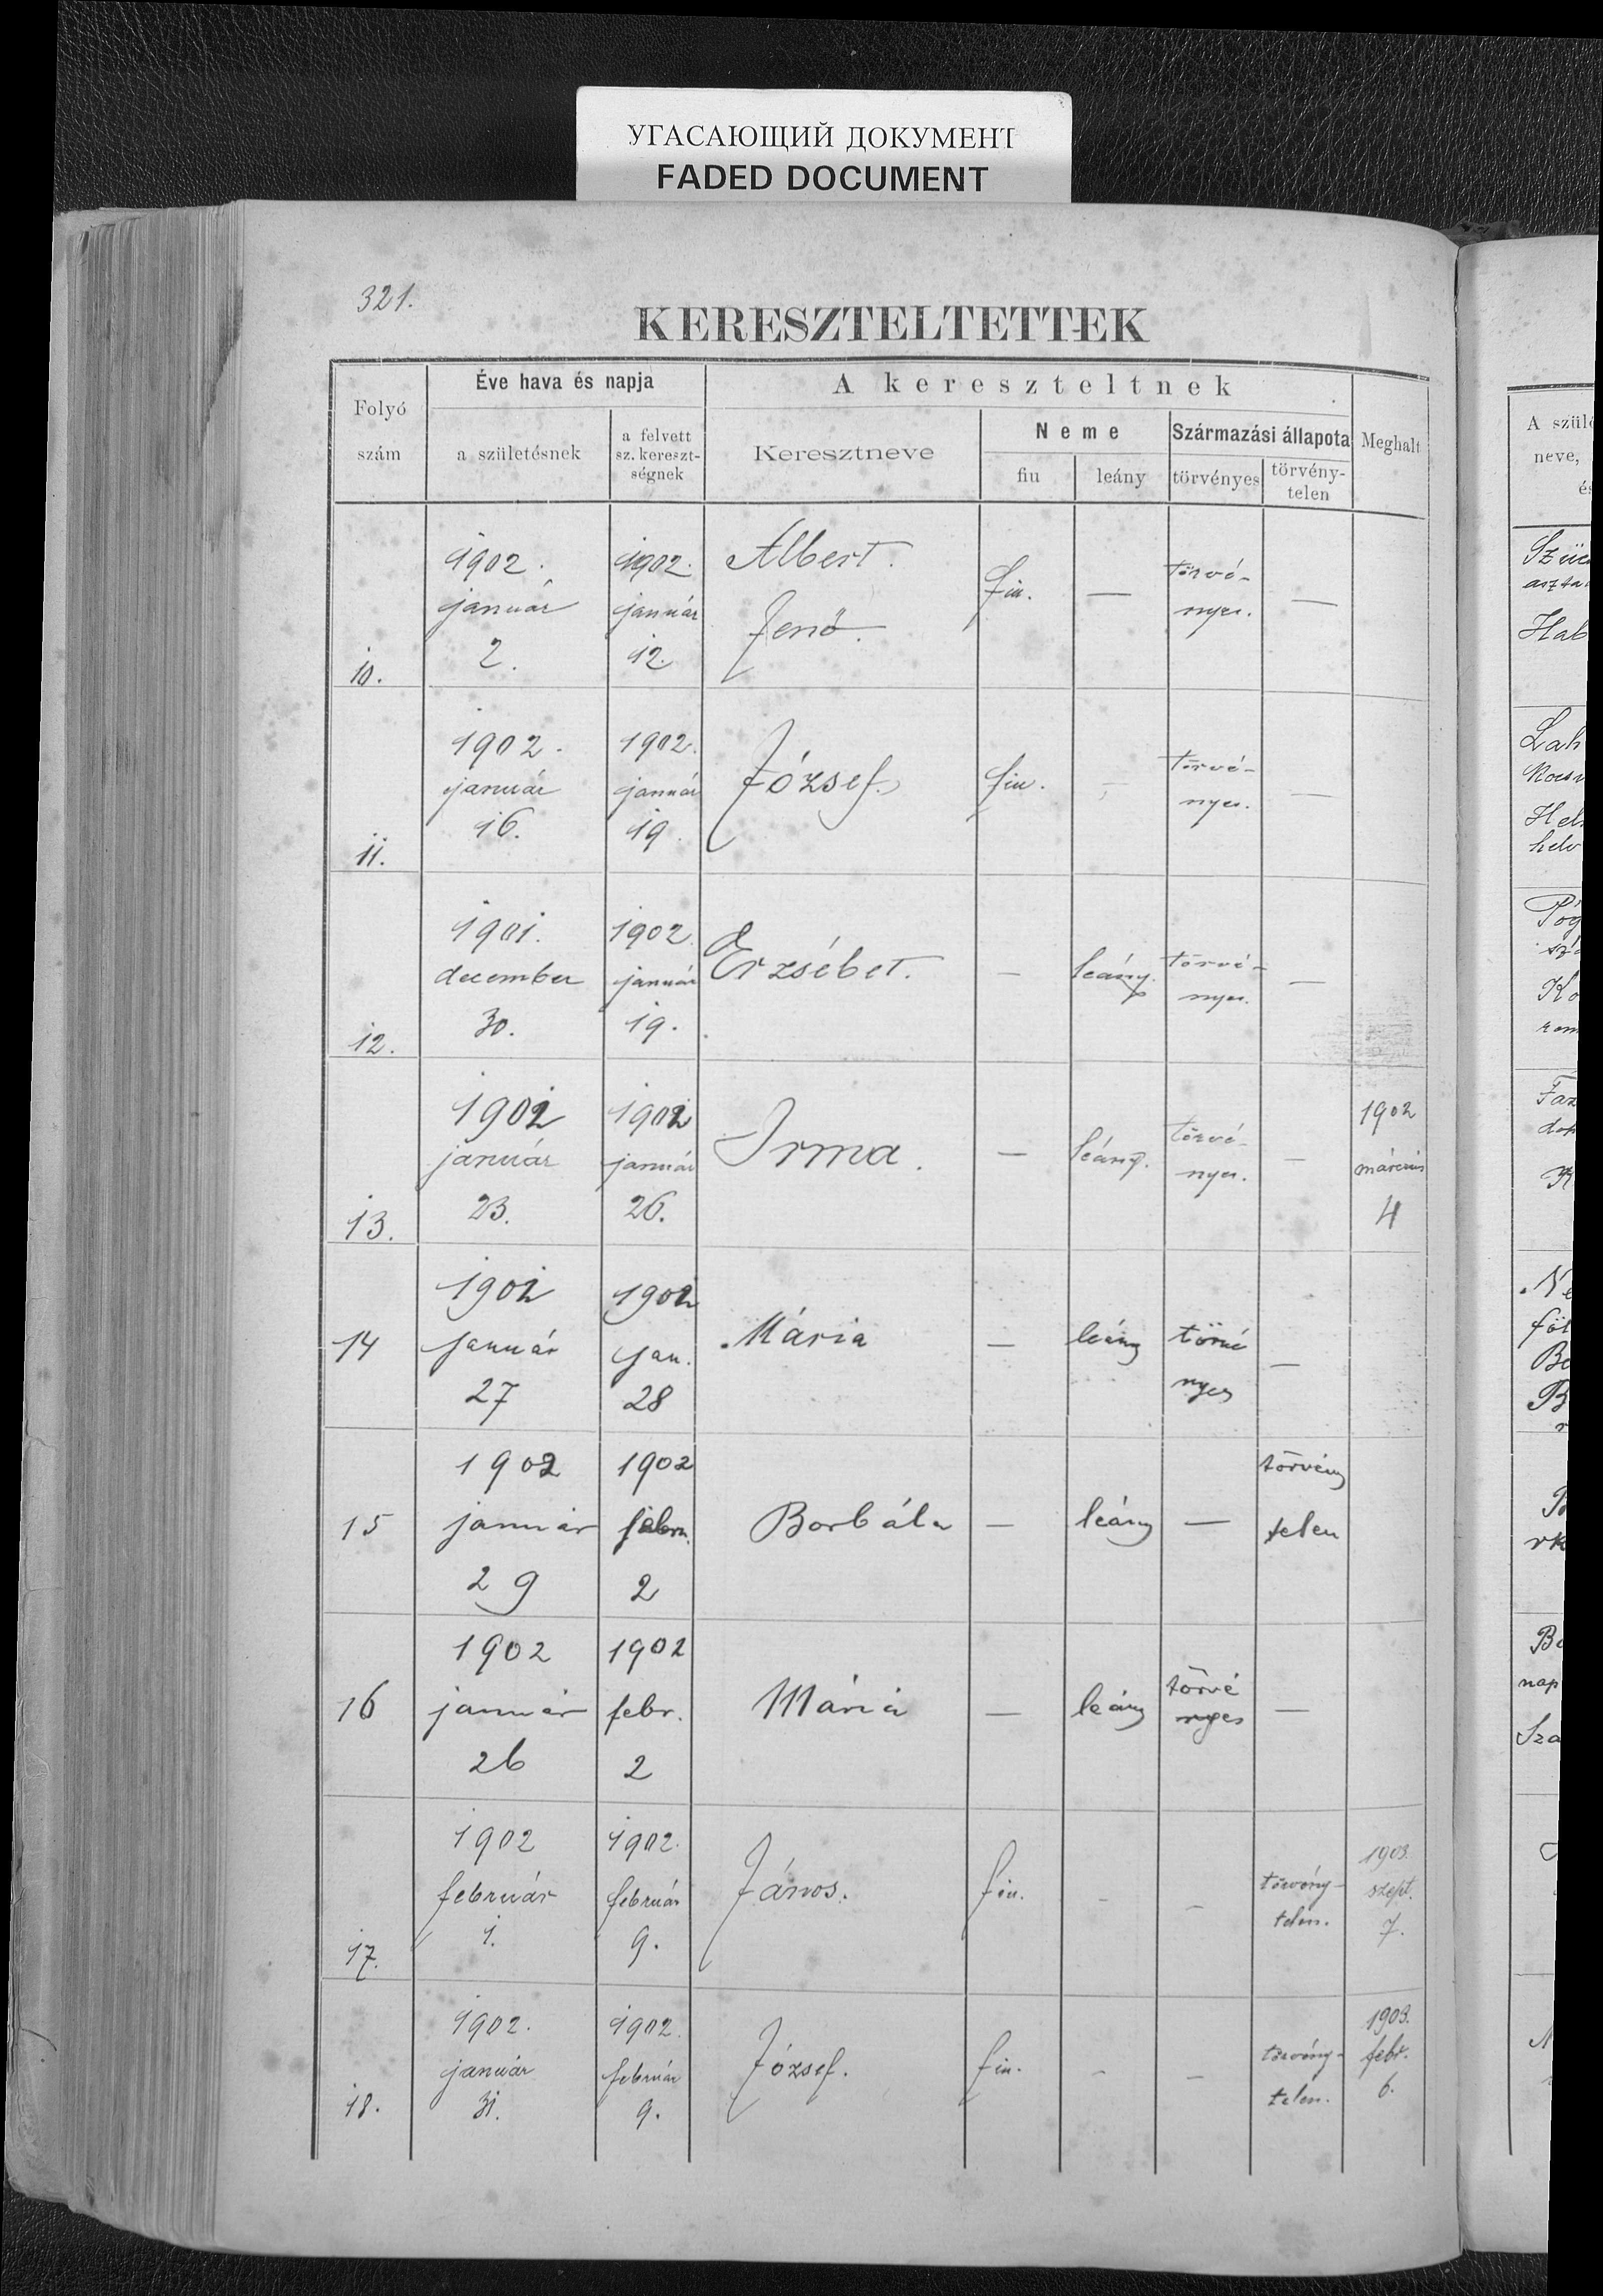 УГАСАЮЩИЙ ДОКУМЕНТ
FADED DOCUMENT
321.
KERESZTELTETTEK
Folyó
szám
Éve hava és napja
a születésnek
a felvett
sz. kereszt-
ségnek
A kereszteltnek
Keresztneve
Neme
fiu
leány
Származási állapota
törvényes
törvény-
telen
Meghalt
10.
1902.
január
2.
1902.
január
12.
Albert
Jenő.
fiu.
—
törvé-
nyes.
—
11.
1902.
január
16.
1902.
január
19
József.
fiu.
-
törvé-
nyes.
—
12.
1901.
december
30.
1902.
január
19.
Erzsébet.
—
leány.
törvé-
nyes.
—
13.
1902
január
23.
1902
január
26.
Irma.
—
leány.
törvé-
nyes.
—
1902
márczius
4
14
1902
január
27
1902
jan.
28
Mária
—
leány
törvé
nyes
—
15
1902
január
29
1902
febru.
2
Borbála
—
leány
—
törvény
telen
16
1902
január
26
1902
febr.
2
Mária
—
leány
törvé
nyes
—
17.
1902
február
1.
1902.
február
9.
János.
fiu.
-
-
törvény-
telen.
1903.
szept.
7.
18.
1902.
január
31.
1902.
február
9.
József.
fiu.
-
-
törvény-
telen.
1903.
febr.
6.
A szül
neve,
é
Hab
Lah
Ko
Faz
K
föl
B
Sza